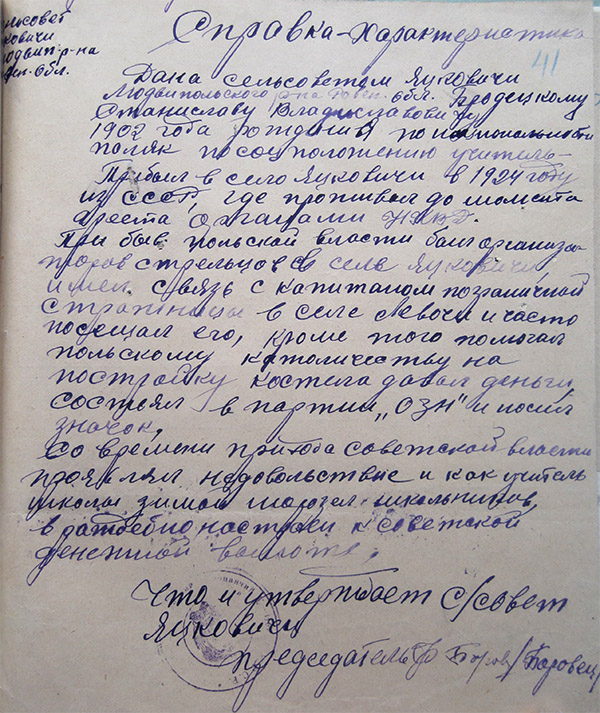 Справка-характеристика
41
сельсовет
Яцковичи
Людвипр-на
Ровен-обл.
Дана сельсоветом Яцковичи
Людвипольского р-на Ровен. обл. Бродецкому
Станиславу Владиславовичу
1902 года рождения по национальности
поляк по соц положению учитель-
Прибыл в село Яцковичи в 1924 году
из СССР, где проживал до момента
ареста органами НКВД.
При быв польской власти был организа-
торов стрельцов в селе Яцковичи,
имел связь с капитаном пограничной
стражницы в селе Левачи и часто
посещал его, кроме того помогал
польскому католичеству на
постройку костела давал деньги,
состоял в партии „ОЗН" и носил
значок,
Со времени прихода советской власти
проявлял недовольствие и как учитель
школы зимой школьников,
враждебно настроен к советской
денежной валюте.
Что и утверждает С/совет
Яцковичи
председатель Боров /Боровец/